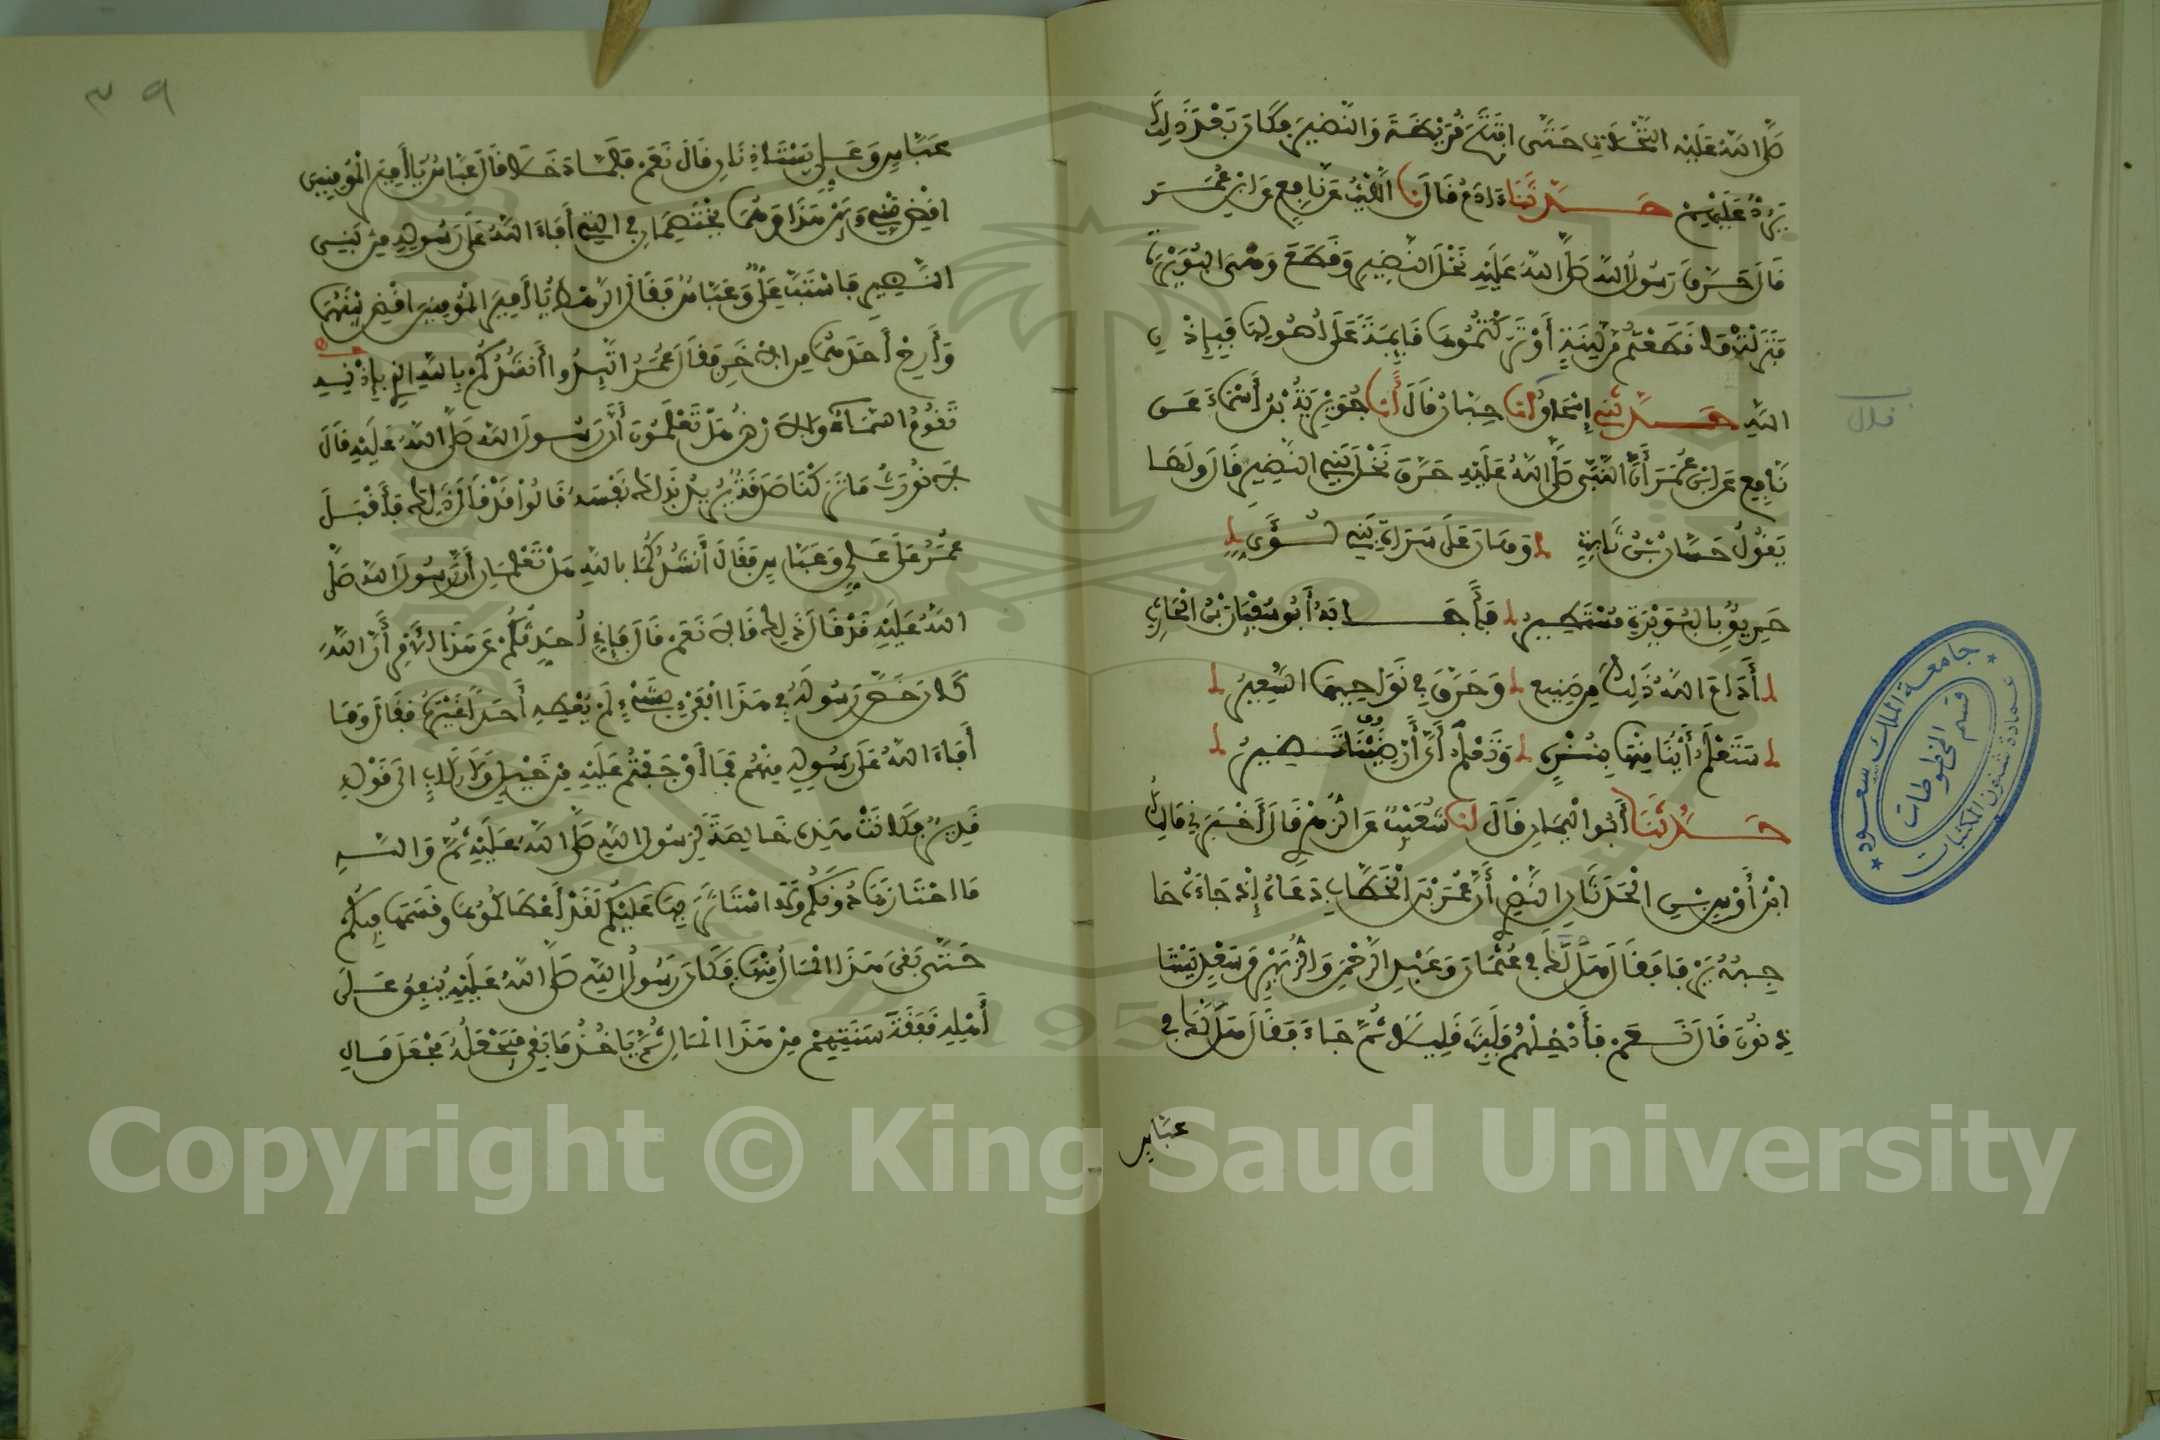 صلى الله عليه النخلات حتى افتتح قريظة والنضير فكان بعد ذلك
يرد عليهم حدثنا ءادم قال نا الليث عن نافع عن ابن عمر
قال حرق رسول الله صلى الله عليه نخل النضير وقطع وهى البويرة
فنزلت ما قطعتم من لينة أو تركتموها قايمة على أصولها فبإذن
الله حدثني إسحاق أنا حبان قال أنا جويرية بن أسماء عن
نافع عن ابن عمر أن النبي صلى الله عليه حرق نخل بني النضير قال ولها
يقول حسان بن ثابت وهان على سراة بني لؤي
حريق بالبويرة مستطير فأجابه أبو سفيان بن الحارث
أدام الله ذلك من صنيع وحرق في نواحيها السعير
ستعلم أينا منها بنزه وتعلم أي أرضينا تضير
حدثنا أبو اليمان قال أنا شعيب عن الزهري قال أخبرني مالك
ابن أوس بن الحدثان النصري أن عمر بن الخطاب دعاه إذ جاءه حا
جبه يرفا فقال هل لك في عثمان وعبد الرحمن والزبير وسعد يستا
ذنون قال نعم فأدخلهم فلبث قليلا ثم جاء فقال هل لك في
عباس
٣٩
عباس وعلي يستاذنان قال نعم فلما دخلا قال عباس يا أمير المؤمنين
اقض بيني وبين هذا وهما يختصمان في التي أفاء الله على رسوله من بني
النضير فاستب علي وعباس فقال الرهط يا أمير المؤمنين اقض بينهما
وأرح أحدهما من الاخر فقال عمر اتيدوا أنشدكم بالله الذي بإذنه
تقوم السماء والارض هل تعلمون أن رسول الله صلى الله عليه قال
لا نورث ما تركنا صدقة يريد بذلك نفسه قالوا قد قال ذلك فأقبل
عمر على علي وعباس فقال أنشدكما بالله هل تعلمان أن رسول الله صلى
الله عليه قد قال ذلك قالا نعم قال فإني أحدثكم عن هذا الأمر أن الله
كان خص رسوله في هذا الفيء بشيء لم يعطه أحدا غيره فقال وما
أفاء الله على رسوله منهم فما أوجفتم عليه من خيل ولا ركاب الى قوله
قدير فكانت هذه خالصة لرسول الله صلى الله عليه ثم والله
ما احتازها دونكم ولا استأثرها عليكم لقد أعطاكموها وقسمها فيكم
حتى بقي هذا المال منها فكان رسول الله صلى الله عليه ينفق على
أهله نفقة سنتهم من هذا المال ثم ياخذ ما بقي فيجعله مجعل مال
جامعة الملك سعود
عمادة شئون المكتبات
قسم المخطوطات
Copyright © King Saud University